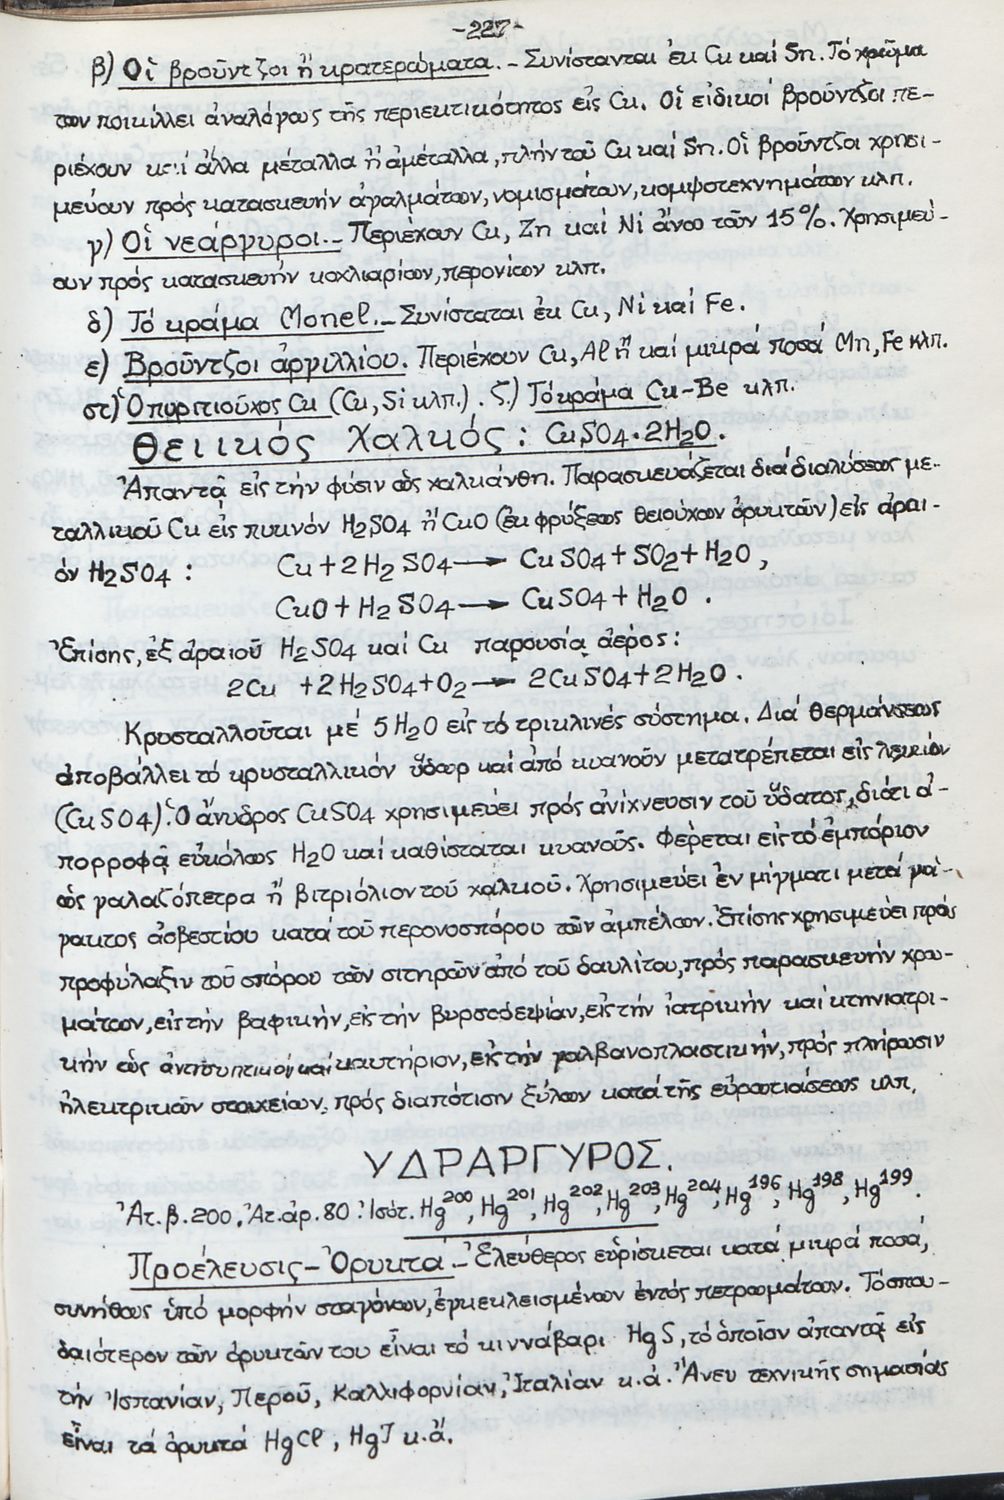 -227-
β) Οἱ βροῦντζοι ἤ κρατερώματα.- Συνίστανται ἐκ Cu καί Sn. Τό χρῶμα
των ποικίλλει ἀναλόγως τῆς περιεκτικότητος εἰς Cu. Οἱ εἰδικοι βροῦντζοι πε-
ριέχουν καί ἄλλα μέταλλα ἤ ἀμέταλλα, πλήν τοῦ Cu καί Sn. Οἱ βροῦντζοι χρησι-
μεύουν πρός κατασκευήν ἀγαλμάτων, νομισμάτων, κομψοτεχνημάτων κλπ.
γ) Οἱ νεάργυροι.- Περιέχουν Cu, Zn καί Ni ἄνω τῶν 15%. Χρησιμεύ-
ουν πρός κατασκευήν κοχλιαρίων, περονίων κλπ.
δ) Τό κράμα Monel.- Συνίσταται ἐκ Cu, Ni καί Fe.
ε) Βροῦντζοι ἀργιλλίου. Περιέχουν Cu, Al ἤ καί μικρά ποσά Mn, Fe κλπ.
στ) Ὁ πυριτιοῦχος Cu (Cu, Si κλπ.). ζ.) Τό κράμα Cu-Be κλπ.
Θειικός Χαλκός: CuSO4·2H2O.
Ἀπαντᾷ εἰς τήν φύσιν ὡς χαλκάνθη. Παρασκευάζεται διά διαλύσεως με-
ταλλικοῦ Cu εἰς πυκνόν H2SO4 ἤ CuO (ἐκ φρύξεως θειούχων ὀρυκτῶν) εἰς ἀραι-
όν H2SO4 : Cu+2H2SO4→ CuSO4+SO2+H2O,
CuO+H2SO4→ CuSO4+H2O.
Ἐπίσης, ἐξ ἀραιοῦ H2SO4 καί Cu παρουσίᾳ ἀέρος:
2Cu +2H2SO4+O2→ 2CuSO4+2H2O.
Κρυσταλλοῦται μέ 5H2O εἰς τό τρικλινές σύστημα. Διά θερμάνσεως
ἀποβάλλει τό κρυσταλλικόν ὕδωρ καί ἀπό κυανοῦν μετατρέπεται εἰς λευκόν
(CuSO4). Ὁ ἄνυδρος CuSO4 χρησιμεύει πρός ἀνίχνευσιν τοῦ ὕδατος, διότι ἀ-
πορροφᾷ εὐκόλως H2O καί καθίσταται κυανοῦς. Φέρεται εἰς τό ἐμπόριον
ὡς γαλαζόπετρα ἤ βιτριόλιον τοῦ χαλκοῦ. Χρησιμεύει ἐν μίγματι μετά γά-
λακτος ἀσβεστίου κατά τοῦ περονοσπόρου τῶν ἀμπέλων. Ἐπίσης χρησιμεύει πρός
προφύλαξιν τοῦ σπόρου τῶν σιτηρῶν ἀπό τοῦ δαυλίτου, πρός παρασκευήν χρω-
μάτων, εἰς τήν βαφικήν, εἰς τήν βυρσοδεψίαν, εἰς τήν ἰατρικήν καί κτηνιατρι-
κήν ὡς ἀντισηπτικόν καί καυτήριον, εἰς τήν γαλβανοπλαστικήν, πρός πλήρωσιν
ἠλεκτρικῶν στοιχείων, πρός διαπότισιν ξύλων κατά τῆς εὐρωτιάσεως κλπ.
ΥΔΡΑΡΓΥΡΟΣ.
Ἀτ. β. 200. Ἀτ. ἀρ. 80. Ἰσότ. Hg200, Hg201, Hg202, Hg203, Hg204, Hg196, Hg198, Hg199.
Προέλευσις-Ὀρυκτά.- Ἐλεύθερος εὑρίσκεται κατά μικρά ποσά,
συνήθως ὑπό μορφήν σταγόνων, ἐγκεκλεισμένων ἐντός πετρωμάτων. Τό σπου-
δαιότερον τῶν ὀρυκτῶν του εἶναι τό κιννάβαρι HgS, τό ὁποῖον ἀπαντᾷ εἰς
τήν Ἰσπανίαν, Περοῦ, Καλλιφορνίαν, Ἰταλίαν κ.ἀ. Ἄνευ τεχνικῆς σημασίας
εἶναι τά ὀρυκτά HgCl, HgJ κ.ἄ.